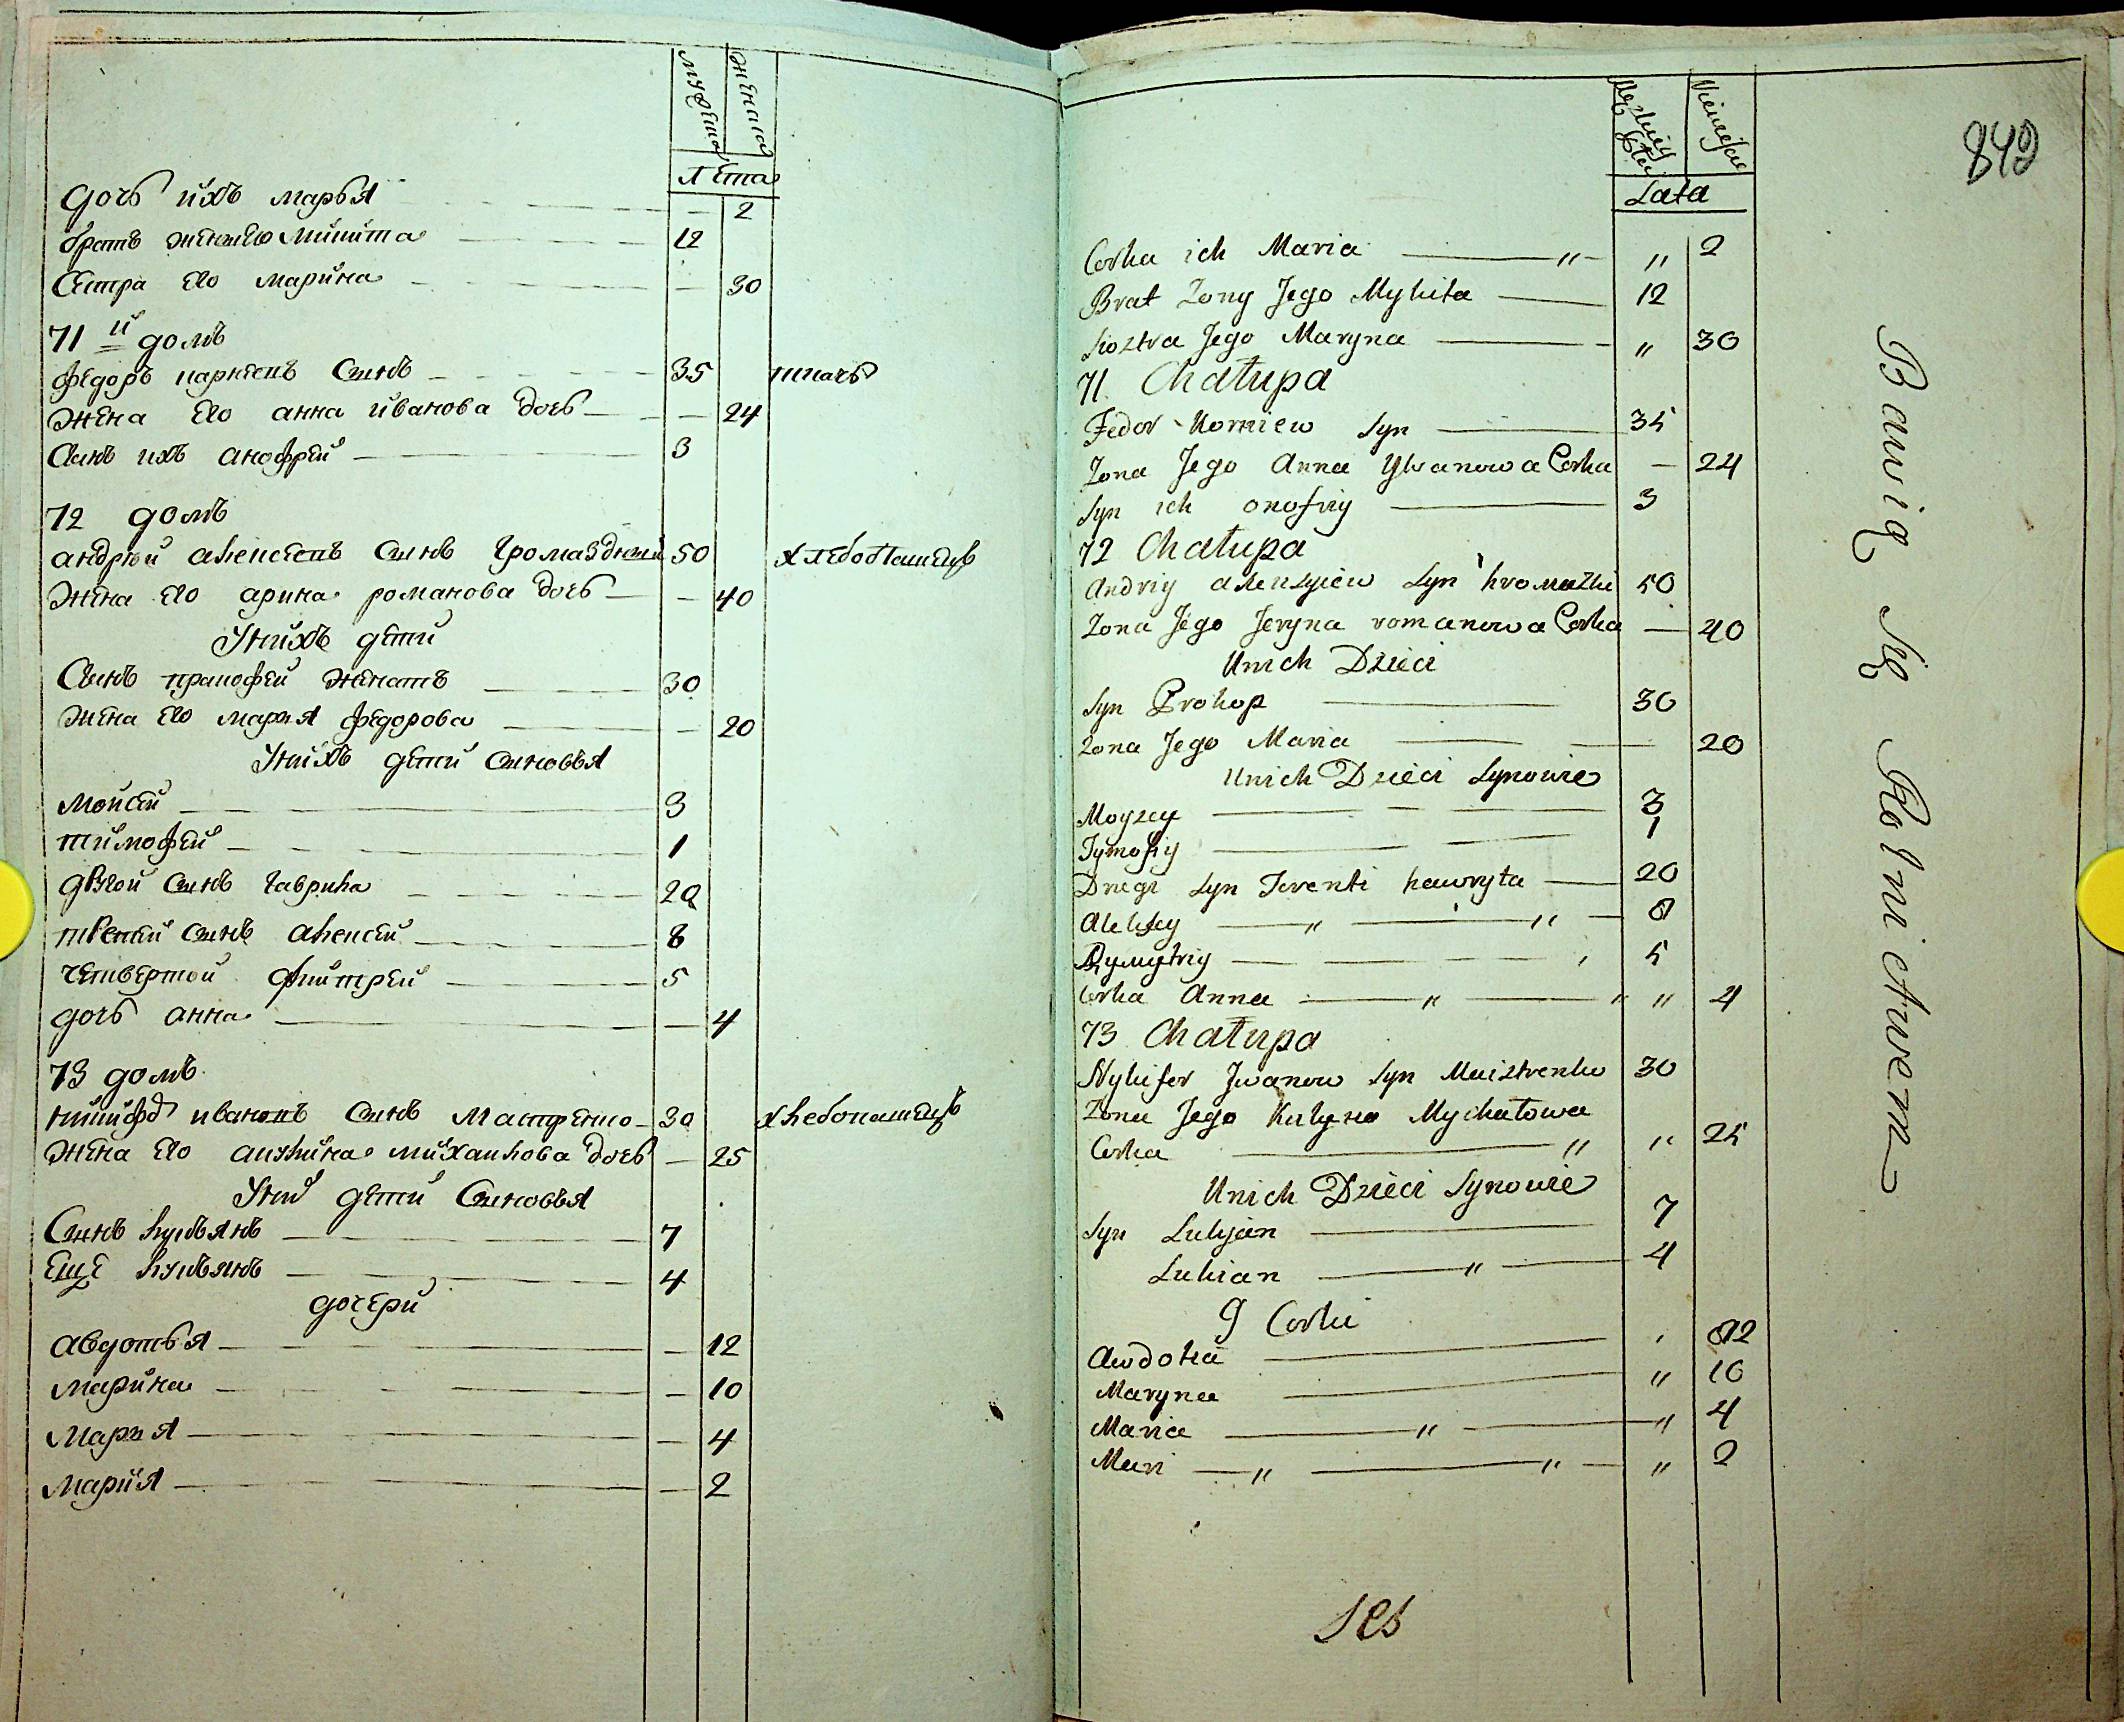 мужеска
женска
Лета
дочь ихъ марья - 2
братъ жены Его микита 12
сестра Его марина - 30
71 й домъ
федоръ карнеевъ сынъ 35 ткачь
жена Его анна иванова дочь - 24
сынъ ихъ анофрей 3
72 домъ
андрей алексеевъ сынъ громадзкий 50 хлебопашецъ
жена Его арина романова дочь - 40
У нихъ дети
сынъ пракофей женатъ 30
жена Его марья федорова - 20
У нихъ дети сыновья
моисей 3
тимофей 1
другой сынъ гаврила 20
третий сынъ алексей 8
четвертой дмитрей 5
дочь анна - 4
73 домъ
никифоръ ивановъ сынъ мастренко 30 хлебопашецъ
жена Его акулина михаилова дочь - 25
У них дети сыновья
сынъ лукьянъ 7
Еще лукьянъ 4
дочери
авдотья - 12
марина - 10
марья - 4
мария - 2
849
Lata
Corka ich Maria " 2
Brat Zony Jego Mykita 12
Siostra Jego Maryna " 30
71 Chałupa
Fedor Korniew Syn 35
Zona Jego Anna Ywanowa Corka - 24
Syn ich onofriy 3
72 Chałupa
Andriy alexsyiew Syn hromazki 50
Zona Jego Jeryna romanowa Corka - 40
Unich Dzieci
Syn Prokop 30
Zona Jego Maria 20
Unich Dzieci Synowie
Moyzey 3
Tymofiy 1
Drugi Syn hawryła 20
Alexey 8
Dymytriy 5
Corka Anna " 4
73 Chałupa
Nykifor Jwanow Syn Maistrenko 30
Zona Jego Kulyna Mychałowa
Corka " 25
Unich Dzieci Synowie
Syn Lukjan 7
Lukian 4
Corki
Awdotia 12
Maryna " 10
Maria " 4
Mari " 2
Bawią Się Rolnictwem